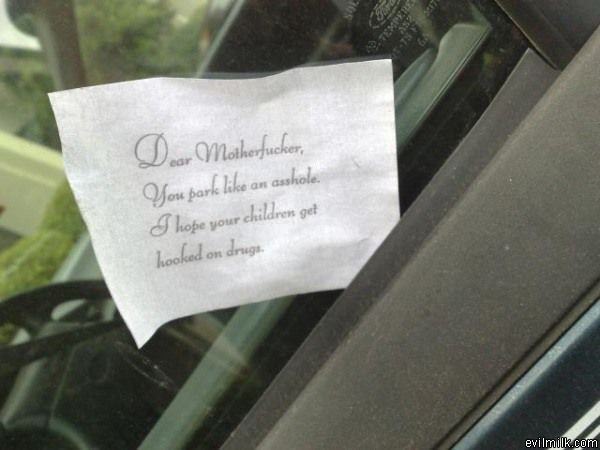 Ford
Dear Motherfucker,
You park like an asshole.
I hope your children get
hooked on drugs.
evilmilk.com